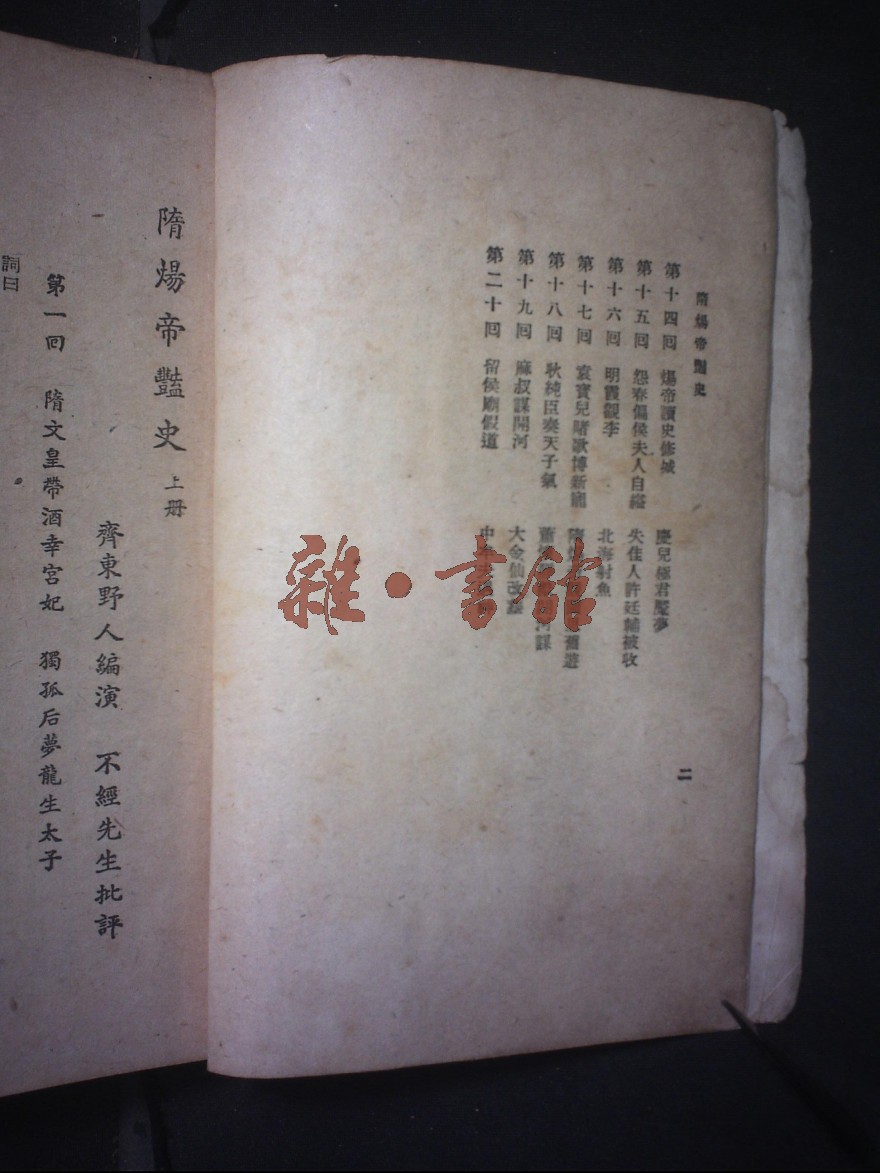 隋煬帝豔史
第十四回 煬帝讀史修城 慶兒極君魘夢
第十五回 怨春偏侯夫人自縊 失佳人許廷輔被收
第十六回 明霞觀李 北海射魚
第十七回 袁寶兒賭歌博新寵 隋 舊遊
第十八回 耿純臣奏天子氣 蕭 河謀
第十九回 麻叔謀開河 大金仙改葬
第二十回 留侯廟假道 中
二
隋煬帝豔史 上册
齊東野人編演 不經先生批評
第一回 隋文皇帶酒幸宮妃 獨孤后夢龍生太子
詞曰
雜·書館